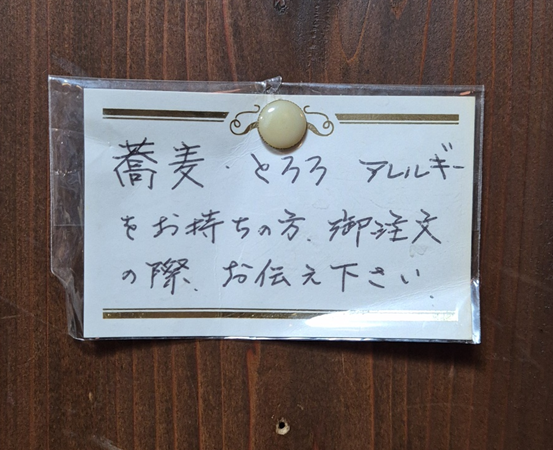 蕎麦・とろろ アレルギー
をお持ちの方、御注文
の際、お伝え下さい.